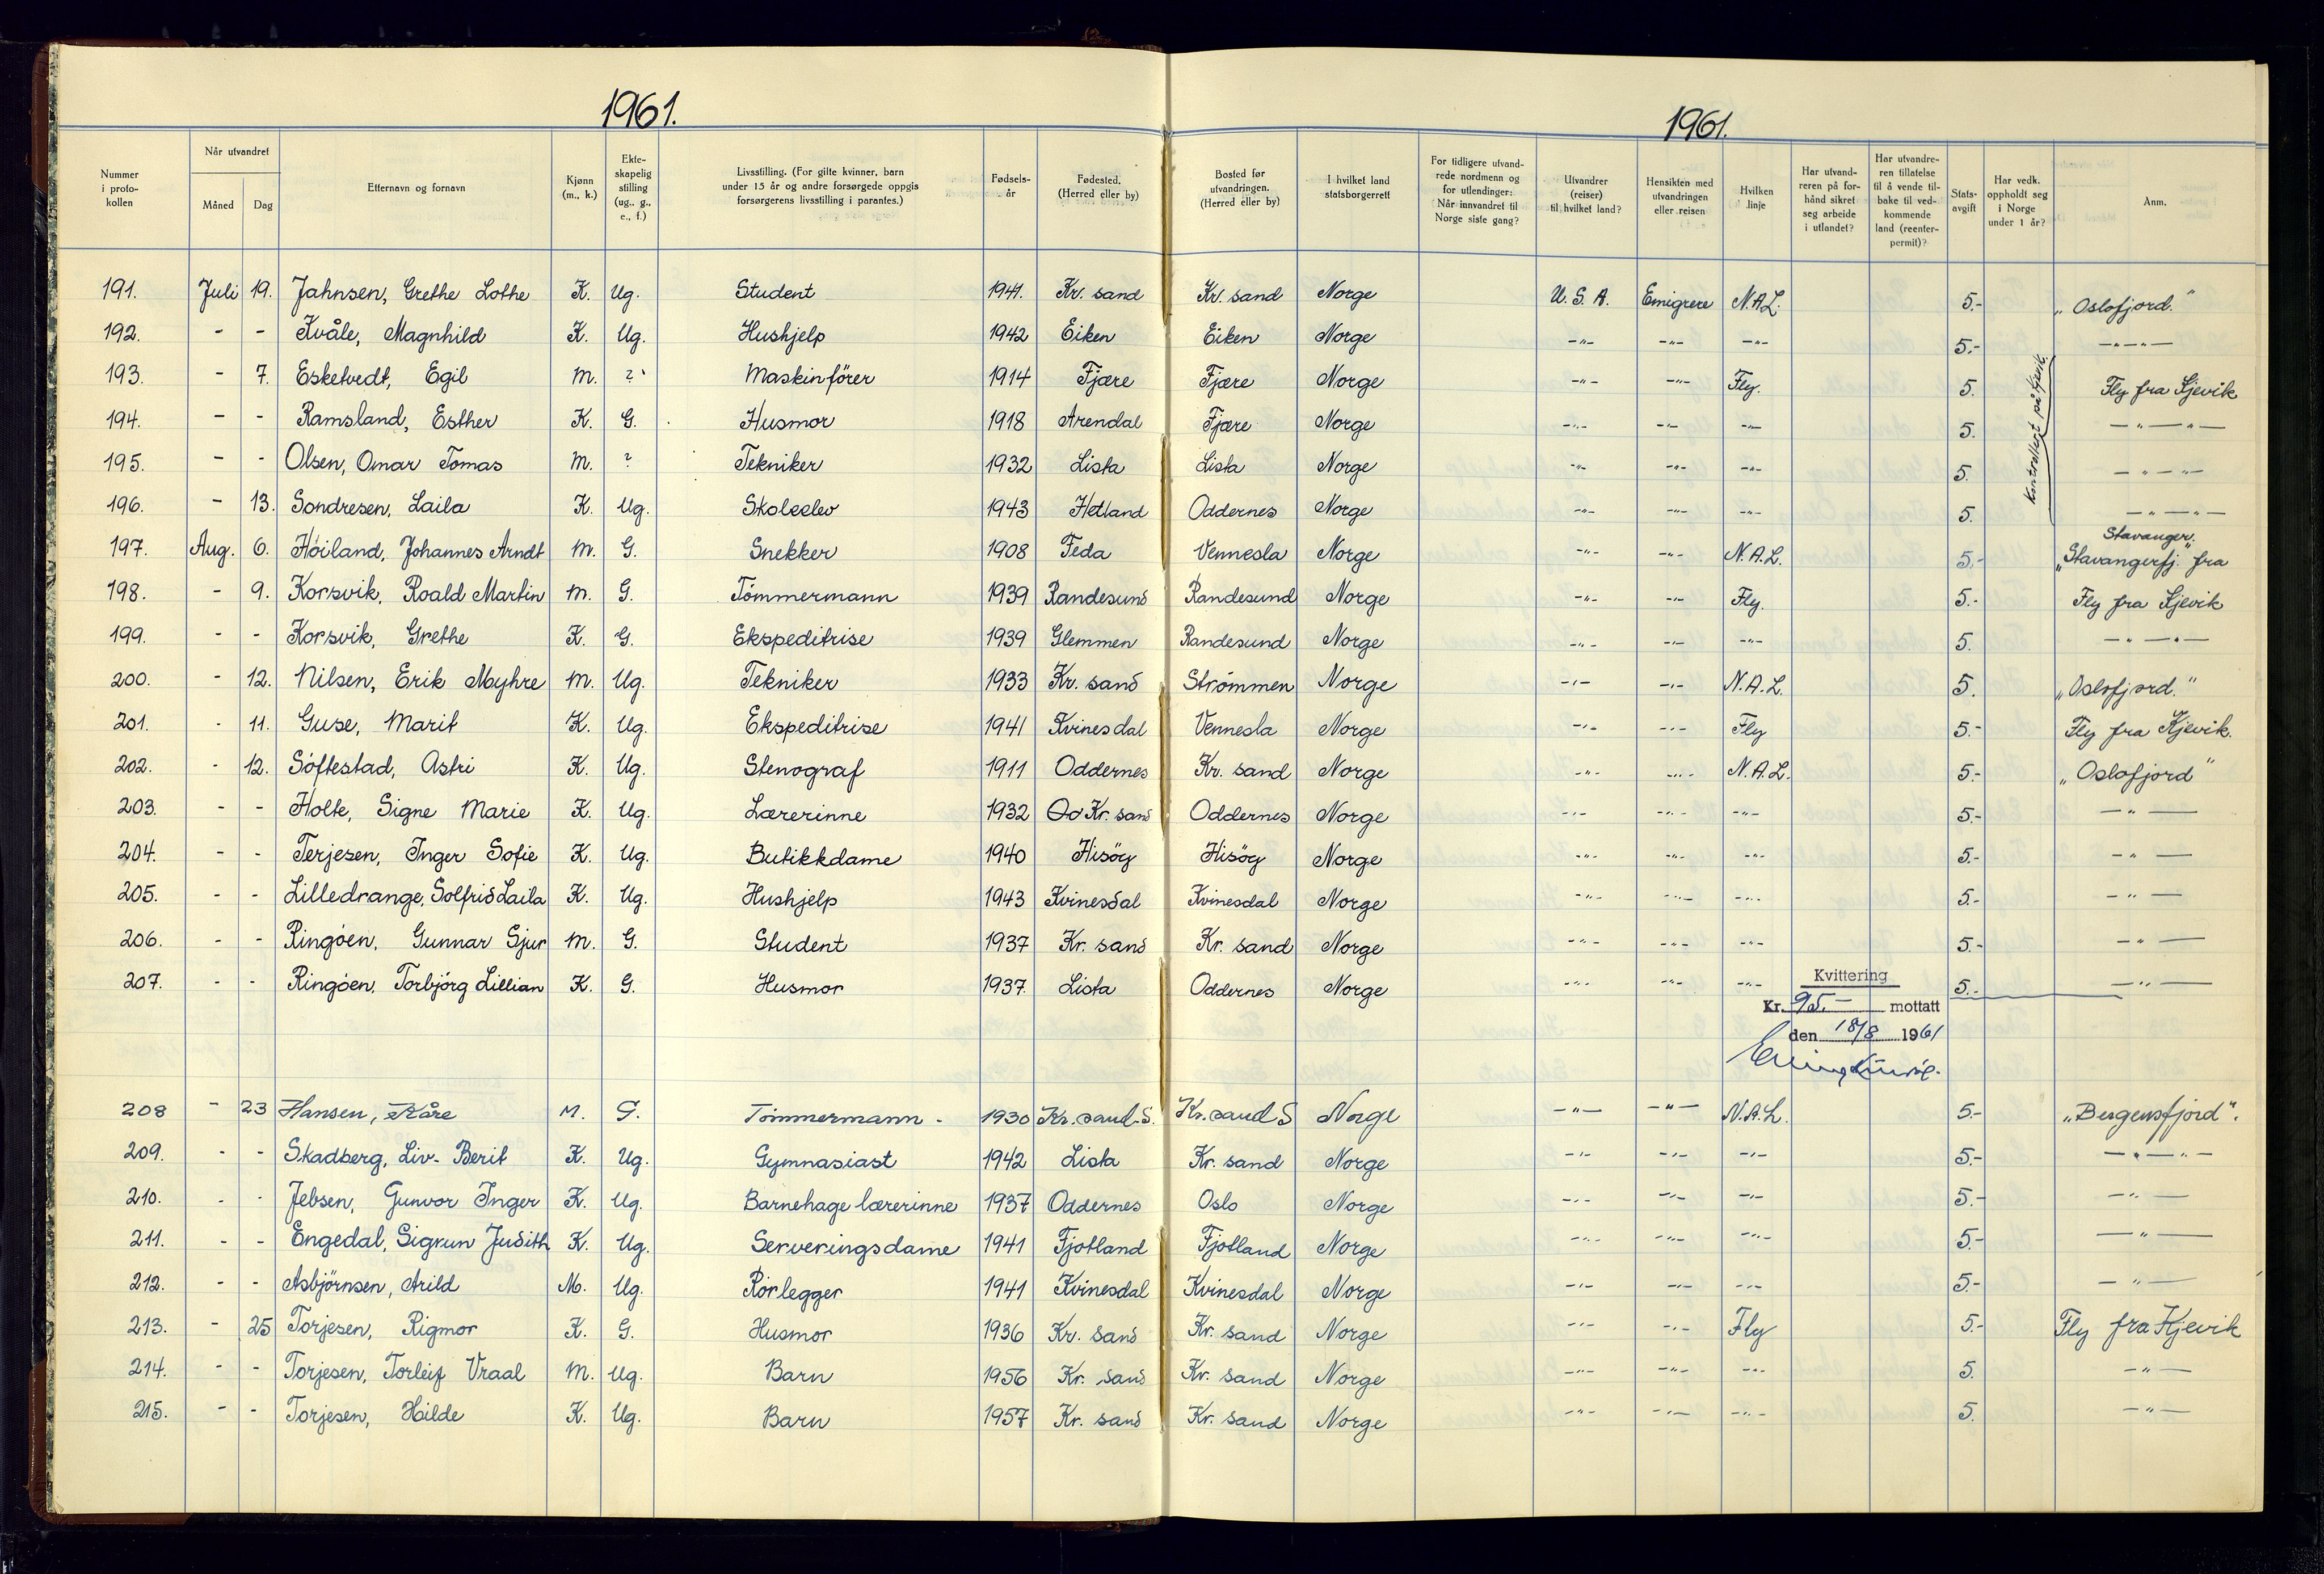 1961.
1961.
Nummer i proto-kollen | Når utvandret Måned Dag | Etternavn og fornavn | Kjønn (m., k.) | Ekte-skapelig stilling (ug., g., e., f.) | Livsstilling. (For gifte kvinner, barn under 15 år og andre forsørgede oppgis forsørgerens livsstilling i parantes.) | Fødsels-år | Fødested. (Herred eller by) | Bosted før utvandringen. (Herred eller by) | I hvilket land statsborgerrett | For tidligere utvand-rede nordmenn og for utlendinger: Når innvandret til Norge siste gang? | Utvandrer (reiser) til hvilket land? | Hensikten med utvandringen eller reisen | Hvilken linje | Har utvand-reren på for-hånd sikret seg arbeide i utlandet? | Har utvandre-ren tillatelse til å vende til-bake til ved-kommende land (reenter-permit)? | Stats-avgift | Har vedk. oppholdt seg i Norge under 1 år? | Anm.
191. Juli 19. Jahnsen, Grethe Lothe K. Ug. Student 1941. Kr. sand Kr. sand Norge U.S.A. Emigrere N.A.L. 5.- "Oslofjord."
192. - - Kvåle, Magnhild K. Ug. Hushjelp 1942 Eiken Eiken Norge -"- -"- -"- 5.- -"-"-
193. - 7. Esketvedt, Egil M. ? Maskinfører 1914 Fjære Fjære Norge -"- -"- Fly. 5. Fly fra Kjevik
194. - - Ramsland, Esther K. G. Husmor 1918 Arendal Fjære Norge -"- -"- -"- 5. -"-"-
195. - - Olsen, Omar Tomas M. ? Tekniker 1932 Lista Lista Norge -"- -"- -"- 5. -"-"-
196. - 13. Sondresen, Laila K. Ug. Skoleelev 1943 Hetland Oddernes Norge -"- -"- -"- 5. -"-"-
Kontrollert på Kjevik.
197. Aug. 6. Høiland, Johannes Arndt M. G. Snekker 1908 Feda Vennesla Norge -"- -"- N.A.L. 5.- "Stavangerfj." fra Stavanger.
198. - 9. Korsvik, Roald Martin M. G. Tömmermann 1939 Randesund Randesund Norge -"- -"- Fly. 5.- Fly fra Kjevik
199. - - Korsvik, Grethe K. G. Ekspeditrise 1939 Glemmen Randesund Norge -"- -"- -"- 5. -"-"-
200. - 12. Nilsen, Erik Myhre M. Ug. Tekniker 1933 Kr. sand Strømmen Norge -"- -"- N.A.L. 5. "Oslofjord."
201. - 11. Guse, Marit K. Ug. Ekspeditrise 1941 Kvinesdal Vennesla Norge -"- -"- Fly 5.- Fly fra Kjevik.
202. - 12. Söftestad, Astri K. Ug. Stenograf 1911 Oddernes Kr. sand Norge -"- -"- N.A.L. 5.- "Oslofjord"
203. - - Holte, Signe Marie K. Ug. Lærerinne 1932 Od Kr. sand Oddernes Norge -"- -"- -"- 5.- -"-
204. - - Terjesen, Inger Sofie K. Ug. Butikkdame 1940 Hisöy Hisöy Norge -"- -"- -"- 5.- -"-
205. - - Lilledrange, Solfrid Laila K. Ug. Hushjelp 1943 Kvinesdal Kvinesdal Norge -"- -"- -"- 5.- -"-
206. - - Ringöen, Gunnar Sjur M. G. Student 1937 Kr. sand Kr. sand Norge -"- -"- -"- 5.- -"-
207. - - Ringöen, Torbjörg Lillian K. G. Husmor 1937. Lista Oddernes Norge -"- -"- -"- 5.- -"-
Kvittering
Kr. 95.- mottatt
den 18/8 1961
208 - 23 Hansen, Kåre M. G. Tömmermann - 1930 Kr.sand.S. Kr.sand S Norge -"- -"- N.A.L. 5.- "Bergensfjord".
209. - - Skadberg, Liv-Berit K. Ug. Gymnasiast 1942 Lista Kr. sand Norge -"- -"- -"- 5.- -"-"-
210. - - Jebsen, Gunvor Inger K. Ug. Barnehage lærerinne 1937 Oddernes Oslo Norge -"- -"- -"- 5.- -"-
211. - - Engedal, Sigrun Judith K. Ug. Serveringsdame 1941 Fjotland Fjotland Norge -"- -"- -"- 5.- -"-
212. - - Asbjörnsen, Arild M. Ug. Rörlegger 1941 Kvinesdal Kvinesdal Norge -"- -"- -"- 5.- -"-
213. - 25 Torjesen, Rigmor K. G. Husmor 1936 Kr. sand Kr. sand Norge -"- -"- Fly 5.- Fly fra Kjevik
214. - - Torjesen, Torleif Vraal M. Ug. Barn 1956 Kr. sand Kr. sand Norge -"- -"- -"- 5. -"-
215. - - Torjesen, Hilde K. Ug. Barn 1957 Kr. sand Kr. sand Norge -"- -"- -"- 5. -"-